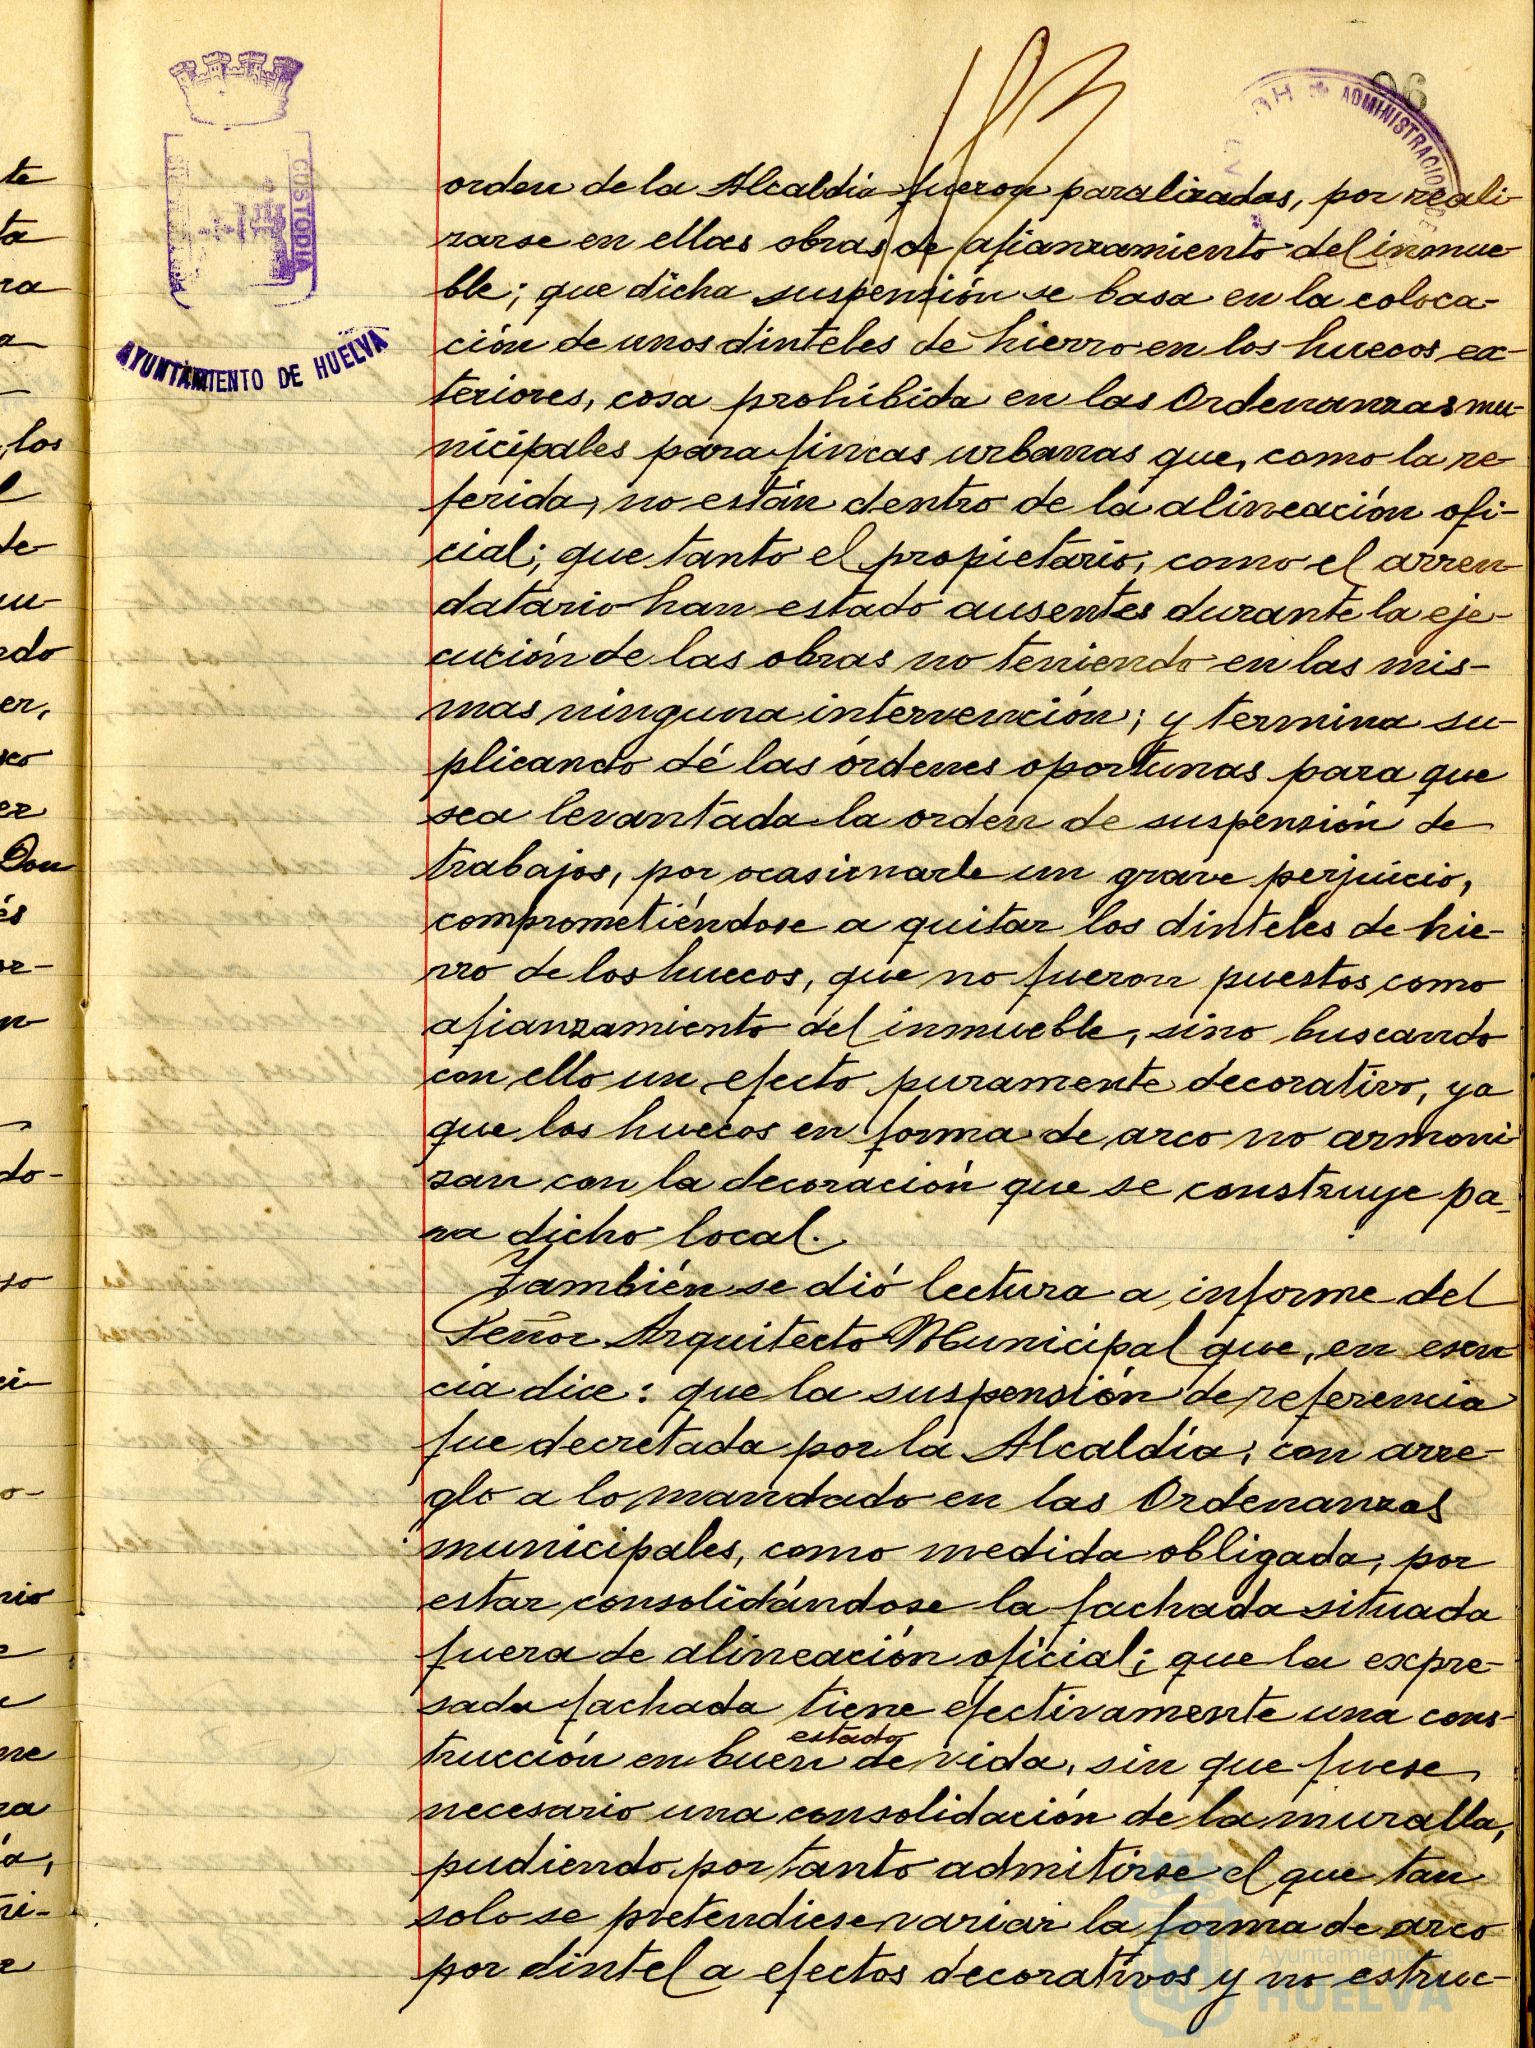 96
ADMINISTRACION DE
CUSTODIA
AYUNTAMIENTO DE HUELVA
orden de la Alcaldía fueron paralizadas, por reali-
zarse en ellas obras de afianzamiento del inmue-
ble; que dicha suspensión se basa en la coloca-
ción de unos dinteles de hierro en los huecos ex-
teriores, cosa prohibida en las Ordenanzas mu-
nicipales para fincas urbanas que, como la re-
ferida, no están dentro de la alineación ofi-
cial; que tanto el propietario, como el arren-
datario han estado ausentes durante la eje-
cución de las obras no teniendo en las mis-
mas ninguna intervención; y termina su-
plicando dé las órdenes oportunas para que
sea levantada la orden de suspensión de
trabajos, por ocasionarle un grave perjuicio,
comprometiéndose a quitar los dinteles de hie-
rro de los huecos, que no fueron puestos como
afianzamiento del inmueble, sino buscando
con ello un efecto puramente decorativo, ya
que los huecos en forma de arco no armoni-
zan con la decoración que se construye pa-
ra dicho local.
También se dió lectura a informe del
Señor Arquitecto Municipal que, en esen-
cia dice: que la suspensión de referencia
fue decretada por la Alcaldía, con arre-
glo a lo mandado en las Ordenanzas
municipales, como medida obligada, por
estar consolidándose la fachada situada
fuera de alineación oficial; que la expre-
sada fachada tiene efectivamente una cons-
estado
trucción en buen de vida, sin que fuese
necesario una consolidación de la muralla,
pudiendo por tanto admitirse el que tan
solo se pretendiese variar la forma de arco
por dintel a efectos decorativos y no estruc-
Ayuntamiento de
HUELVA